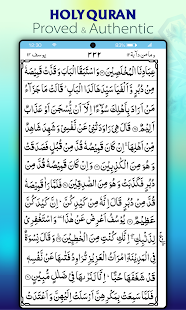 HOLY QURAN
Proved & Authentic
10:30
يوسف ١٢ ٣٣٢ ومامن دآبة ١٢
عِبَادِنَا الْمُخْلَصِيْنَ ۝ وَاسْتَبَقَا الْبَابَ وَقَدَّتْ قَمِيْصَهٗ
مِنْ دُبُرٍ وَّاَلْفَيَا سَيِّدَهَا لَدَا الْبَابِ ؕ قَالَتْ مَا جَزَآءُ
مَنْ اَرَادَ بِاَهْلِكَ سُوْٓءًا اِلَّآ اَنْ يُّسْجَنَ اَوْ عَذَابٌ
اَلِيْمٌ ۝ قَالَ هِيَ رَاوَدَتْنِيْ عَنْ نَّفْسِيْ وَشَهِدَ شَاهِدٌ
مِّنْ اَهْلِهَا ۚ اِنْ كَانَ قَمِيْصُهٗ قُدَّ مِنْ قُبُلٍ فَصَدَقَتْ
وَهُوَ مِنَ الْكٰذِبِيْنَ ۝ وَاِنْ كَانَ قَمِيْصُهٗ قُدَّ مِنْ دُبُرٍ
فَكَذَبَتْ وَهُوَ مِنَ الصّٰدِقِيْنَ ۝ فَلَمَّا رَاٰ قَمِيْصَهٗ
قُدَّ مِنْ دُبُرٍ قَالَ اِنَّهٗ مِنْ كَيْدِكُنَّ ؕ اِنَّ كَيْدَكُنَّ
عَظِيْمٌ ۝ يُوْسُفُ اَعْرِضْ عَنْ هٰذَا ٚ وَاسْتَغْفِرِيْ
لِذَنْۢبِكِ ۖ اِنَّكِ كُنْتِ مِنَ الْخٰطِـِٕيْنَ ۝ وَقَالَ نِسْوَةٌ
فِي الْمَدِيْنَةِ امْرَاَتُ الْعَزِيْزِ تُرَاوِدُ فَتٰىهَا عَنْ نَّفْسِهٖ ۚ
قَدْ شَغَفَهَا حُبًّا ؕ اِنَّا لَنَرٰىهَا فِيْ ضَلٰلٍ مُّبِيْنٍ ۝
فَلَمَّا سَمِعَتْ بِمَكْرِهِنَّ اَرْسَلَتْ اِلَيْهِنَّ وَاَعْتَدَتْ